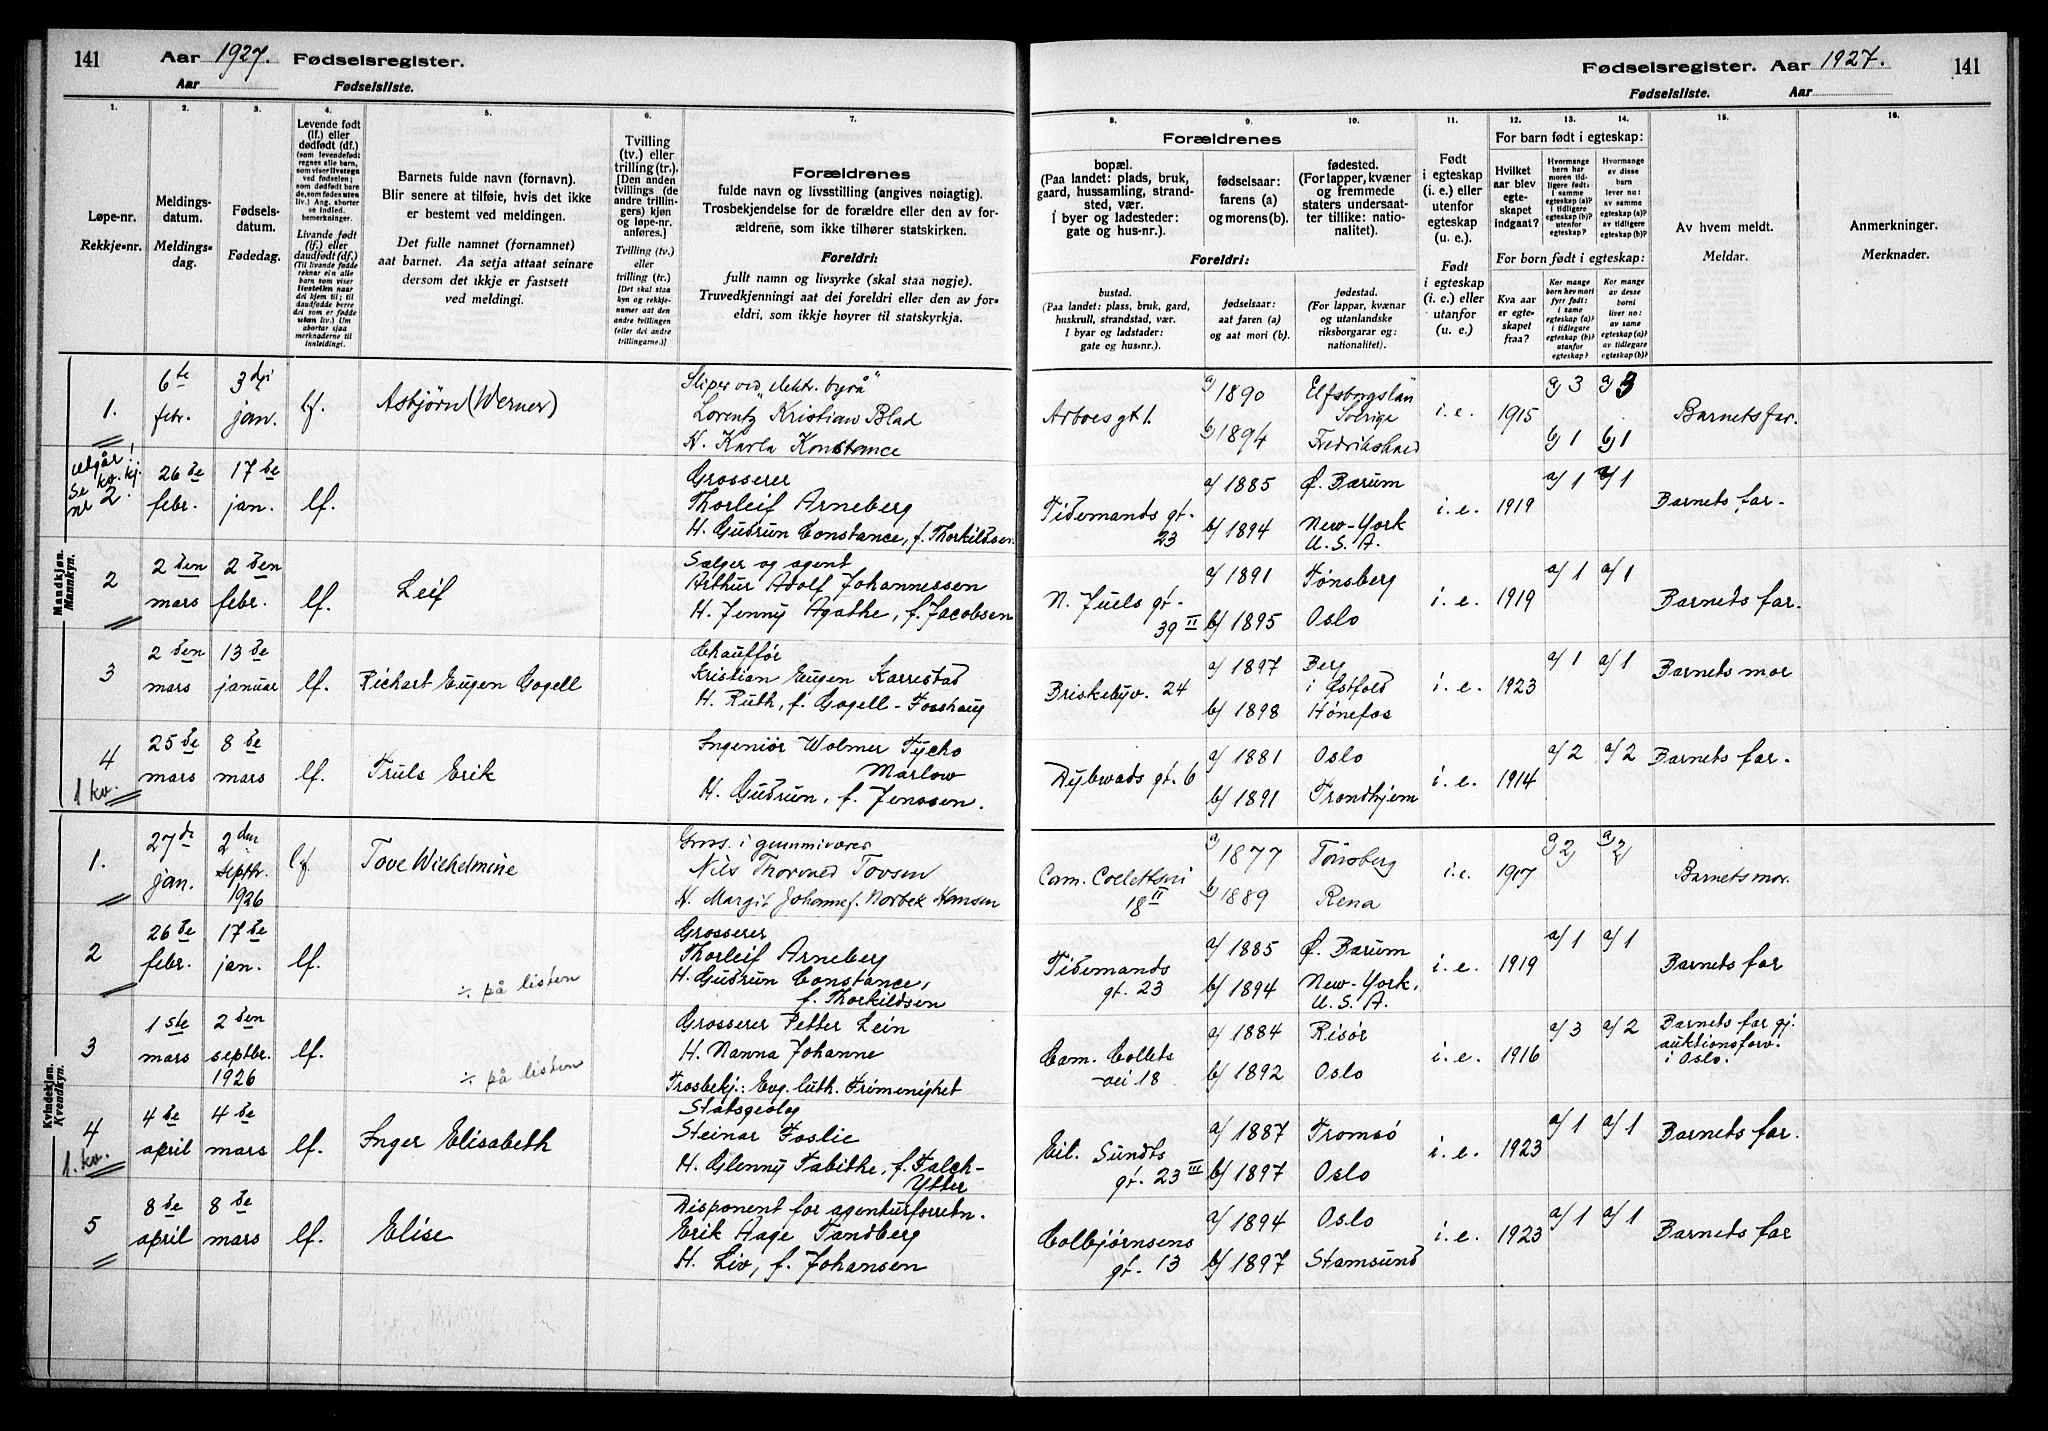 141 Aar 1927. Fødselsregister.
Aar Fødselsliste.
1. 2. 3. 4. 5. 6. 7.
Løpe-nr.
Rekkje-nr.
Meldings-
datum.
Meldings-
dag.
Fødsels-
datum.
Fødedag.
Levende født
(lf.) eller
dødfødt (df.)
(som levendefødt
regnes alle barn,
som viser livstegn
ved fødselen;
som dødfødt bare
de, som fødes uten
liv.) Ang. aborter
se indled.
bemerkninger.
Livande fødd
(lf.) eller
daudfødt (df.)
(Til livande fødde
reknar ein alle
barn som viser
livsteikn naar
dei kjem til; til
daudfødde berre
dei som er fødde
utan liv.) Um
abortar sjaa
merknaderne til
innleidingi.
Barnets fulde navn (fornavn).
Blir senere at tilføie, hvis det ikke
er bestemt ved meldingen.
Det fulle namnet (fornamnet)
aat barnet. Aa setja attaat seinare
dersom det ikkje er fastsett
ved meldingi.
Tvilling
(tv.) eller
trilling (tr.)
[Den anden
tvillings (de
andre trillin-
gers) kjøn
og løpe-nr.
anføres.]
Tvilling (tv.)
eller
trilling (tr.)
[Det skal staa
kyn og rekkje-
numer aat den
andre tvillingen
(eller dei andre
trillingarne.)]
Forældrenes
fulde navn og livsstilling (angives nøiagtig).
Trosbekjendelse for de forældre eller den av for-
ældrene, som ikke tilhører statskirken.
Foreldri:
fullt namn og livsyrke (skal staa nøgje).
Truvedkjenningi aat dei foreldri eller den av for-
eldri, som ikkje høyrer til statskyrkja.
Mandkjøn.
Mannkyn.
1. 6te febr. 3dje jan. lf. Asbjørn (Werner)
Sliper ved "elektr. byrå"
Lorentz Kristian Blad
H. Karla Konstance
utgår!
Se kv. kj.
nr 2.
26de febr. 17de jan. lf.
Grosserer
Thorleif Arneberg
H. Gudrun Constance, f. Thorkildsen
2 2den mars 2den febr. lf. Leif
Sælger og agent
Arthur Adolf Johannessen
H. Jenny Agathe, f. Jacobsen
3 2den mars 13de januar lf. Richart Eugen Gogell
Chauffør
Kristian Eugen Karrestad
H. Ruth, f. Gogell-Fosshaug
4 25de mars 8de mars lf. Truls Erik
1 kv.
Ingeniør Wolmer Tycho
Marlow
H. Gudrun, f. Jenssen.
Kvindekjøn.
Kvendkyn.
1. 27de jan. 2den septbr. 1926 lf. Tove Wilhelmine
Gross. i gummivarer
Nils Thorvald Tovsen
H. Margit Johanne f. Norbek Hansen
2 26de febr. 17de jan. lf.
÷ på listen
Grosserer
Thorleif Arneberg
H. Gudrun Constance,
f. Thorkildsen
3 1ste mars 2den septbr. 1926 lf.
÷ på listen
Grosserer Petter Lein
H. Nanna Johanne
Trosbekj.: Evg. luth. Frimenighet
4 4de april 4de mars lf. Inger Elisabeth
1. kv.
Statsgeolog
Steinar Foslie
H. Glenny Tabithe, f. Falch-
Ytter
5 8de april 8de mars lf. Elise
Disponent for agenturforretn.
Erik Aage Tandberg
H. Liv, f. Johansen
Fødselsregister. Aar 1927. 141
Fødselsliste. Aar
8. 9. 10. 11. 12. 13. 14. 15. 16.
Forældrenes
bopæl.
(Paa landet: plads, bruk,
gaard, hussamling, strand-
sted, vær.
I byer og ladesteder:
gate og hus-nr.).
fødselsaar:
farens (a)
og morens (b).
fødested.
(For lapper, kvæner
og fremmede
staters undersaat-
ter tillike: natio-
nalitet).
Foreldri:
bustad.
(Paa landet: plass, bruk, gard,
huskrull, strandstad, vær.
I byar og ladstader:
gate og hus-nr.).
fødselsaar:
aat faren (a)
og aat mori (b).
fødestad.
(For lappar, kvænar
og utanlandske
riksborgarar og:
nationalitet).
Født
i egteskap
(i. e.) eller
utenfor
egteskap
(u. e.).
Født
i egteskap
(i. e.) eller
utanfor
(u. e.).
For barn født i egteskap:
Hvilket
aar blev
egte-
skapet
indgaat?
Hvormange
barn har
moren tid-
ligere født:
i samme
egteskap (a)?
i tidligere
egteskap (b)?
utenfor
egteskap?
Hvormange
av disse
barn
lever nu:
av samme
egteskap (a)?
av tidligere
egteskap (b)?
For born født i egteskap:
Kva aar
er egte-
skapet
fraa?
Kor mange
born hev mori
fyrr født:
i same
egteskap (a)?
i tidlegare
egteskap (b)?
utanfor
egteskap?
Kor mange
av desse
borni
liver no:
av same
egteskap (a)?
av tidlegare
egteskap (b)?
Av hvem meldt.
Meldar.
Anmerkninger.
Merknader.
Arboes gt 1. a) 1890 Elfsborgslän Sverige i. e. 1915 a) 3 a) 3 Barnets far.
b) 1894 Fredrikshald b) 1 b) 1
Tidemands gt. 23 a/ 1885 Ø. Bærum i. e. 1919 a/ 1 a/ 1 Barnets far.
b/ 1894 New-York U. S. A.
N. Juels gt. 39 II a/ 1891 Tønsberg i. e. 1919 a/ 1 a/ 1 Barnets far.
b/ 1895 Oslo
Briskebyv. 24 a/ 1897 Berg i Østfold i. e. 1923 a/ 1 a/ 1 Barnets mor
b/ 1898 Hønefos
Dybwads gt. 6 a/ 1881 Oslo i. e. 1914 a/ 2 a/ 2 Barnets far.
b/ 1891 Trondhjem
Cam. Collettsvei 18 II a) 1877 Tønsberg i. e. 1917 a) 2 a) 2 Barnets mor.
b) 1889 Rena
Tidemands gt. 23 a/ 1885 Ø. Bærum i. e. 1919 a/ 1 a/ 1 Barnets far
b/ 1894 New-York, U. S. A.
Cam. Collets vei 18 a/ 1884 Risør i. e. 1916 a/ 3 a/ 2 Barnets far gj. auktionsforv. i Oslo.
b/ 1892 Oslo
Eil. Sundts gt. 23 III a/ 1887 Tromsø i. e. 1923 a/ 1 a/ 1 Barnets far.
b/ 1897 Oslo
Colbjørnsens gt. 13 a/ 1894 Oslo i. e. 1923 a/ 1 a/ 1 Barnets far
b/ 1897 Stamsund